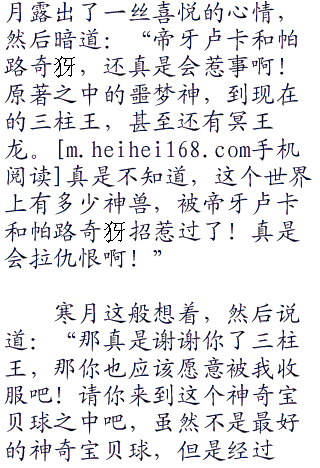 月露出了一丝喜悦的心情，
然后暗道：“帝牙卢卡和帕
路奇犽，还真是会惹事啊！
原著之中的噩梦神，到现在
的三柱王，甚至还有冥王
龙。[m.heihei168.com手机
阅读]真是不知道，这个世界
上有多少神兽，被帝牙卢卡
和帕路奇犽招惹过了！真是
会拉仇恨啊！”
寒月这般想着，然后说
道：“那真是谢谢你了三柱
王，那你也应该愿意被我收
服吧！请你来到这个神奇宝
贝球之中吧，虽然不是最好
的神奇宝贝球，但是经过